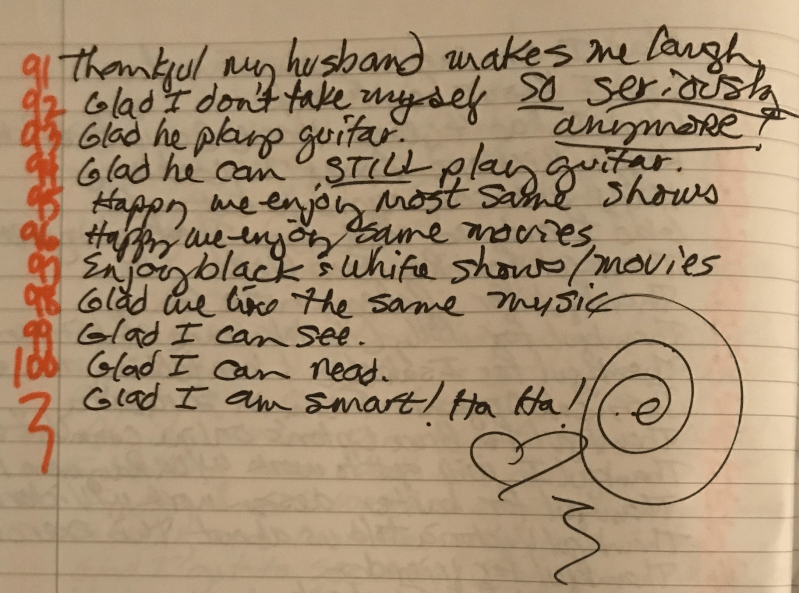 91 Thankful my husband makes me laugh.
92 Glad I don't take myself so seriously
anymore!
93 Glad he plays guitar.
94 Glad he can STILL play guitar.
95 Happy we enjoy most same shows
96 Happy we enjoy same movies
97 Enjoy black & white shows/movies
98 Glad we like the same music
99 Glad I can see.
100 Glad I can read.
Glad I am smart! Ha Ha!